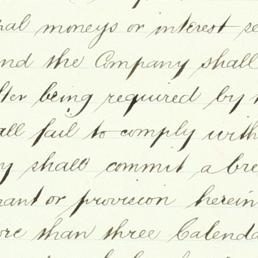 pal moneys or interest se
nd the Company shall
fter being required by
all fail to comply with
y shall commit a bre
nant or provision herein
ore than three Calenda